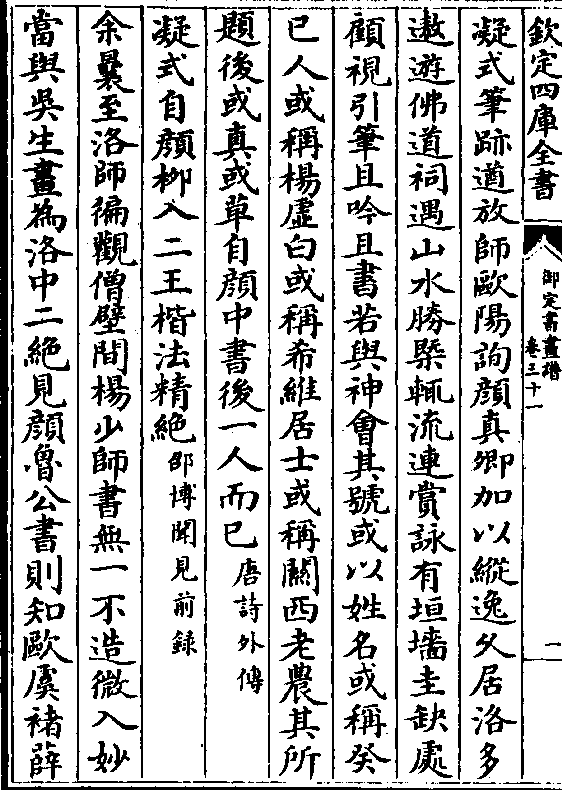 欽定四庫全書
御定書畫譜
卷三十一
二
凝式筆跡遒放師歐陽詢顔真卿加以縱逸久居洛多
遨遊佛道祠遇山水勝槩輒流連賞詠有垣墻圭缺處
顧視引筆且吟且書若與神會其號或以姓名或稱癸
已人或稱楊虛白或稱希維居士或稱關西老農其所
題後或真或草自顔中書後一人而已唐詩外傳
凝式自顔柳入二王楷法精絶邵博聞見前録
余曩至洛師徧觀僧壁間楊少師書無一不造微入妙
當與吳生畫為洛中二絶見顔魯公書則知歐虞褚薛